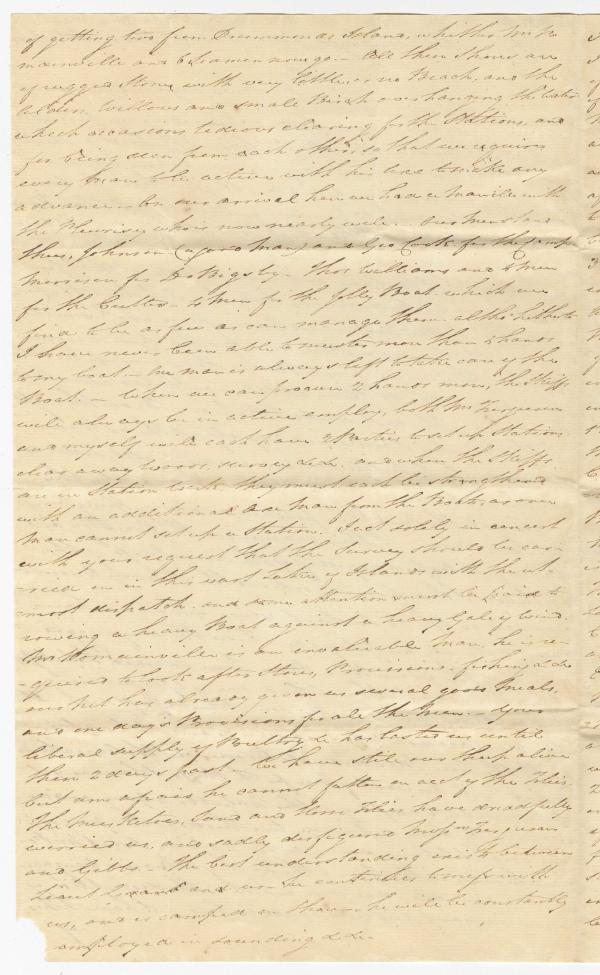 of getting two from Drummonds Island, whither Mr Ro
mainville and 6 Seamen now go — All these Shores are
of rugged Stone with very little or no Beach, and the
Alders, Willows and small Birch overhanging the water
which occasions tedious clearing for the Stations, and
for being seen from each other, so that we require
every man to be active with his axe to make any
advance — On our arrival here we had a Manville with
the Pleurisy who is now nearly well — Our Men are
thus, Johnson (a good Man) and Geo Cook for the Camp
Morrison for Dr Bigsby — Thos Williams and 4 Men
for the Cutter — 4 Men for the Jolly Boat — which we
find to be as few as can manage them. altho' hitherto
I have never been able to muster more than 4 hands
to my boat — One man is always left to take care of the
Boat. — When we can procure 2 hands more, the Skiffs
will always be in active employ, both Mr Ferguson
and myself will each have 2 Parties to set up Stations
clear away woods, survey &c &c. and when the Skiffs
are on Station work they must each be strengthened
with an additional Axe Man from the Boats, as one
Man cannot set up a Station. I act solely in concert
with your request that the Survey should be car-
-ried on in this vast Lake of Islands with the ut-
-most dispatch. and some attention must be paid to
rowing a heavy Boat against a heavy Gale of wind.
Mr Romainville is an invaluable Man, he is re-
-quired to look after Stores, Provisions, fishing &c &c
our Net has already given us several good Meals,
and one day's Provisions for all the Men. — Your
liberal supply of Poultry &c has lasted us until
these 2 days past — We have still our Sheep alive
but am afraid he cannot fatten on acct of the Flies.
The Muskitoes, Sand and Horse Flies have dreadfully
worried us, and sadly disfigured Messrs Ferguson
and Gibbs — The best understanding exists between
Lieut and us — he continues to mess with
us, and is camped on shore — he will be constantly
employed in sounding &c &c —